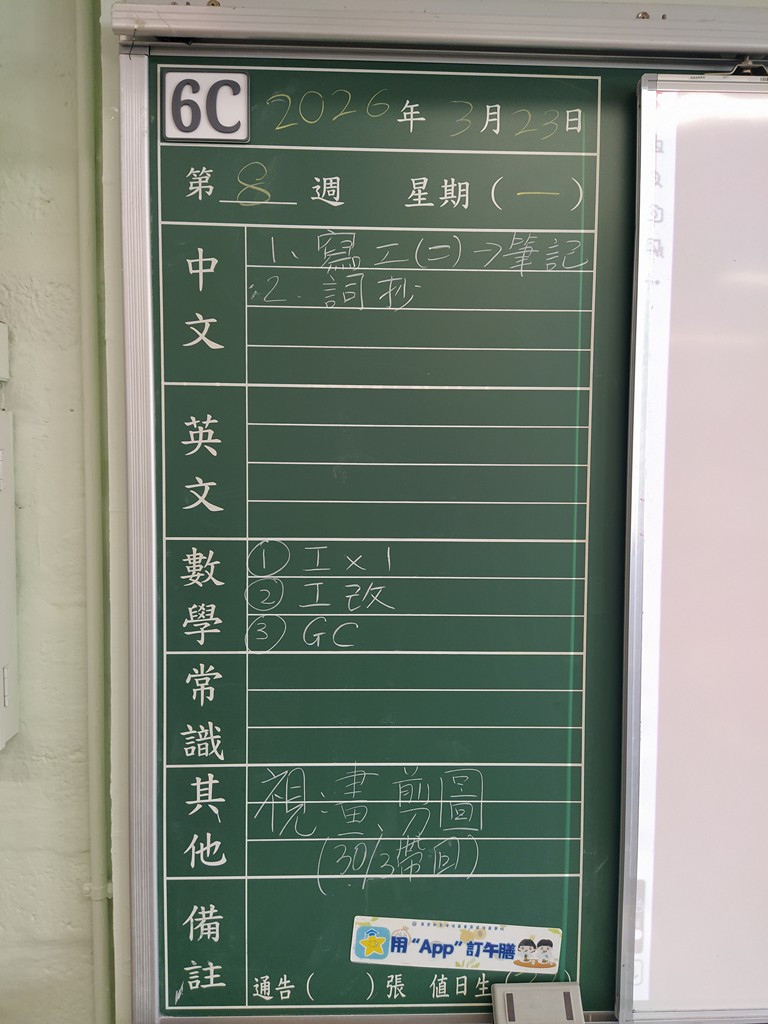 6C 2026年3月23日
第8週 星期(一)
中文
1、寫工(二)→筆記
2. 詞抄
英文
數學
① 工×1
② 工改
③ GC
常識
其他
視:畫、剪圖
(30/3帶回)
備註
用“App”訂午膳
通告( )張 值日生